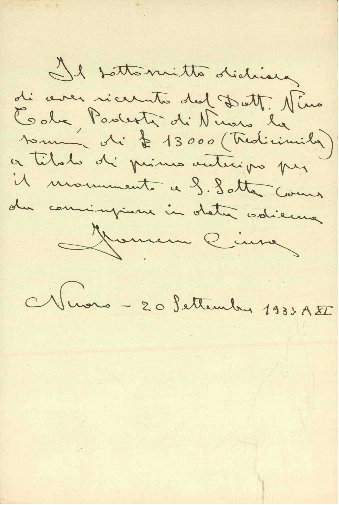 Il sottoscritto dichiara
di aver ricevuto dal Dott. Nino
Coba, Podestà di Nuoro la
somma di £ 13000 (tredicimila)
a titolo di primo anticipo per
il monumento a S. Satta come
da convenzione in data odierna
Francesco Ciusa
Nuoro - 20 Settembre 1933 A XI